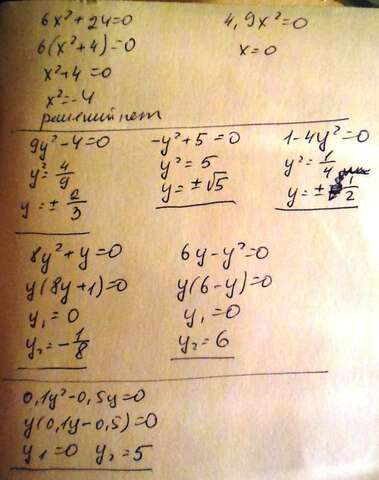 6x²+24=0
6(x²+4)=0
x²+4=0
x²=-4
решений нет
4,9x²=0
x=0
9y²-4=0
y²=4/9
y=±2/3
-y²+5=0
y²=5
y=±√5
1-4y²=0
y²=1/4
y=±1/2
8y²+y=0
y(8y+1)=0
y₁=0
y₂=-1/8
6y-y²=0
y(6-y)=0
y₁=0
y₂=6
0,1y²-0,5y=0
y(0,1y-0,5)=0
y₁=0 y₂=5